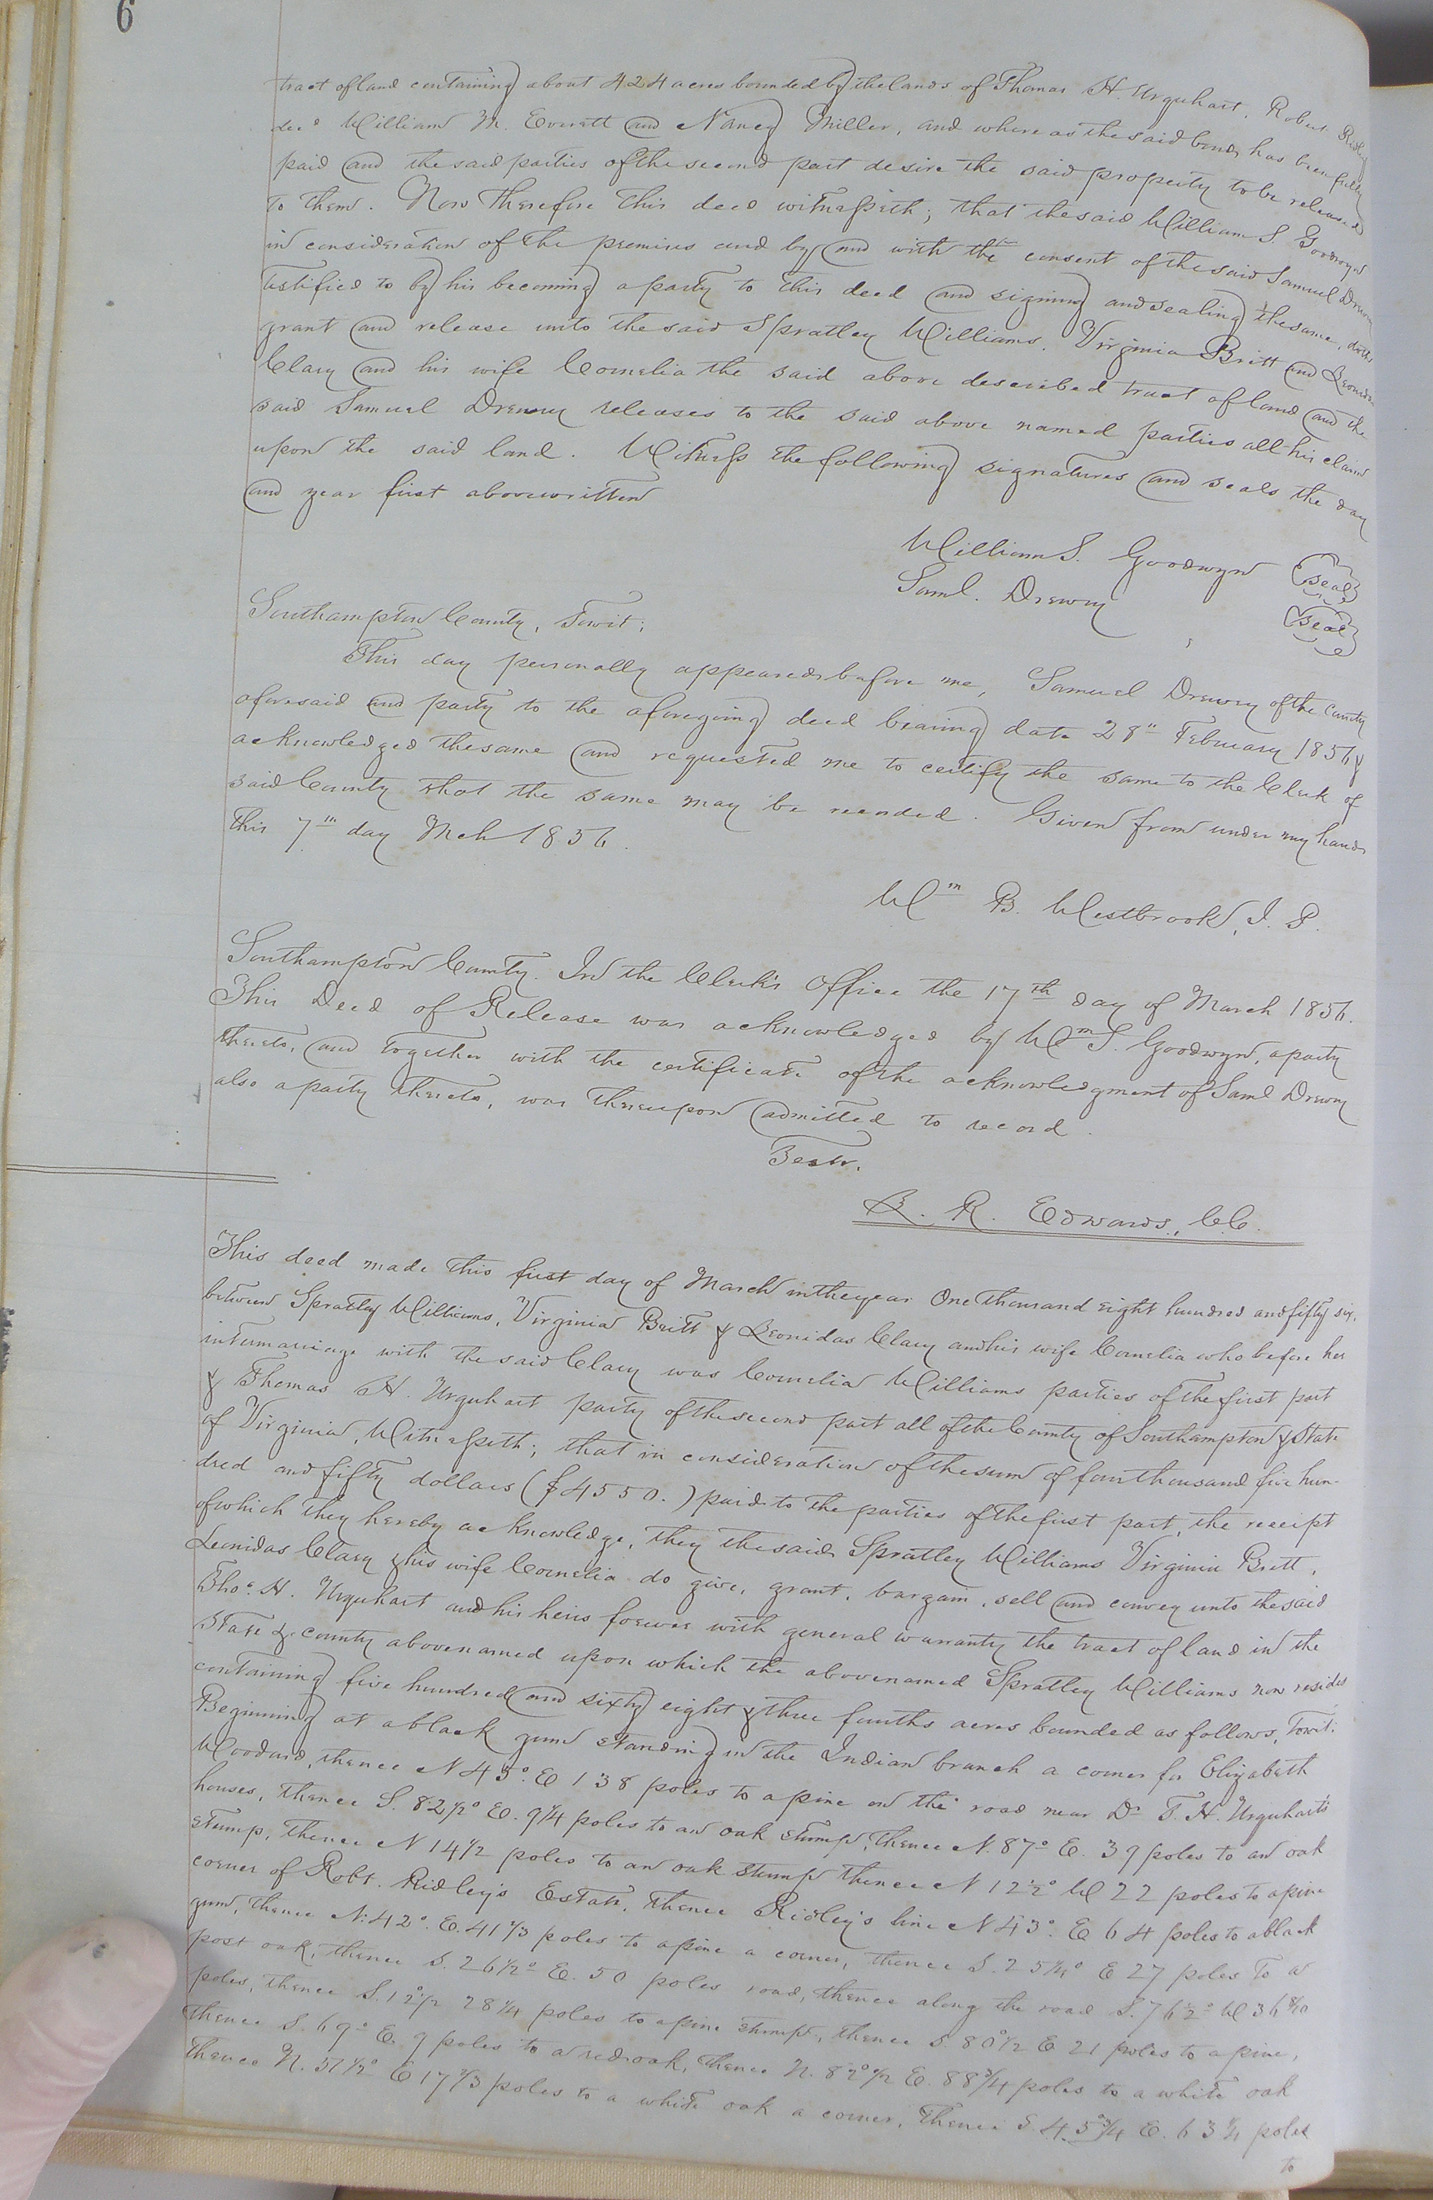 6
tract of land containing about 424 acres bounded by the lands of Thomas H. Urquhart, Robert Ridley
decd William M. Everett and Nancy Miller, and where as the said bond has been fully
paid and the said parties of the second part desire the said property to be released
to them. Now Therefore this deed witnesseth; that the said William S. Goodwyn
in consideration of the premises and by and with the consent of the said Samuel Drewry
testified to by his becoming a party to this deed and signing and sealing the same, doth
grant and release unto the said Spratley Williams, Virginia Britt and Leonidas
Clary and his wife Cornelia the said above described tract of land and the
said Samuel Drewry releases to the said above named parties all his claim
upon the said land. Witness the following signatures and seals the day
and year first above written
William S. Goodwyn Seal
Saml. Drewry Seal
Southampton County, Towit;
This day personally appeared before me, Samuel Drewry of the County
aforesaid and party to the aforegoing deed bearing date 28th February 1856 &
acknowledged the same and requested me to certify the same to the Clerk of
said County that the same may be recorded. Given from under my hand
this 7th day Mch 1856.
Wm B. Westbrook, J. P.
Southampton County. In the Clerk's Office the 17th day of March 1856.
This Deed of Release was acknowledged by Wm S. Goodwyn, a party
thereto, and together with the certificate of the acknowledgment of Saml Drewry
also a party thereto, was thereupon admitted to record.
Teste.
L. R. Edwards, CC.
This deed made this first day of March in the year One thousand eight hundred and fifty six,
between Spratley Williams, Virginia Britt & Leonidas Clary and his wife Cornelia who before her
intermarriage with the said Clary was Cornelia Williams parties of the first part
& Thomas H. Urquhart party of the second part all of the County of Southampton & State
of Virginia, Witnesseth; that in consideration of the sum of four thousand five hun-
dred and fifty dollars ($4550.) paid to the parties of the first part, the receipt
of which they hereby acknowledge, they the said Spratley Williams Virginia Britt,
Leonidas Clary & his wife Cornelia do give, grant, bargain, sell and convey unto the said
Thos. H. Urquhart and his heirs forever with general warranty the tract of land in the
State & county abovenamed upon which the abovenamed Spratley Williams now resides
containing five hundred and sixty eight & three fourths acres bounded as follows, Towit:
Beginning at a black gum standing in the Indian branch a corner for Elizabeth
Woodard, thence N 43°. E 138 poles to a pine on the road near Dr. T. H. Urquhart's
houses, thence S. 82½° E. 9¼ poles to an oak stump, thence N. 87° E. 39 poles to an oak
stump, thence N 14½ poles to an oak stump thence N 12½° W 22 poles to a pine
corner of Robt. Ridley's Estate, thence Ridley's line N 43°. E 64 poles to a black
gum, thence N. 42°. E. 41⅓ poles to a pine a corner, thence S. 25¼° E 27 poles to a
post oak, thence S. 26½° E. 50 poles road, thence along the road S. 76½° W 36
poles, thence S. 12°½ 28¼ poles to a pine stump, thence S. 80°½ E 21 poles to a pine,
thence S. 69° E. 9 poles to a red oak, thence N. 82°½ E. 88¾ poles to a white oak
thence N. 51½° E 17⅔ poles to a white oak a corner, thence S 45°¾ E. 63¼ poles
to